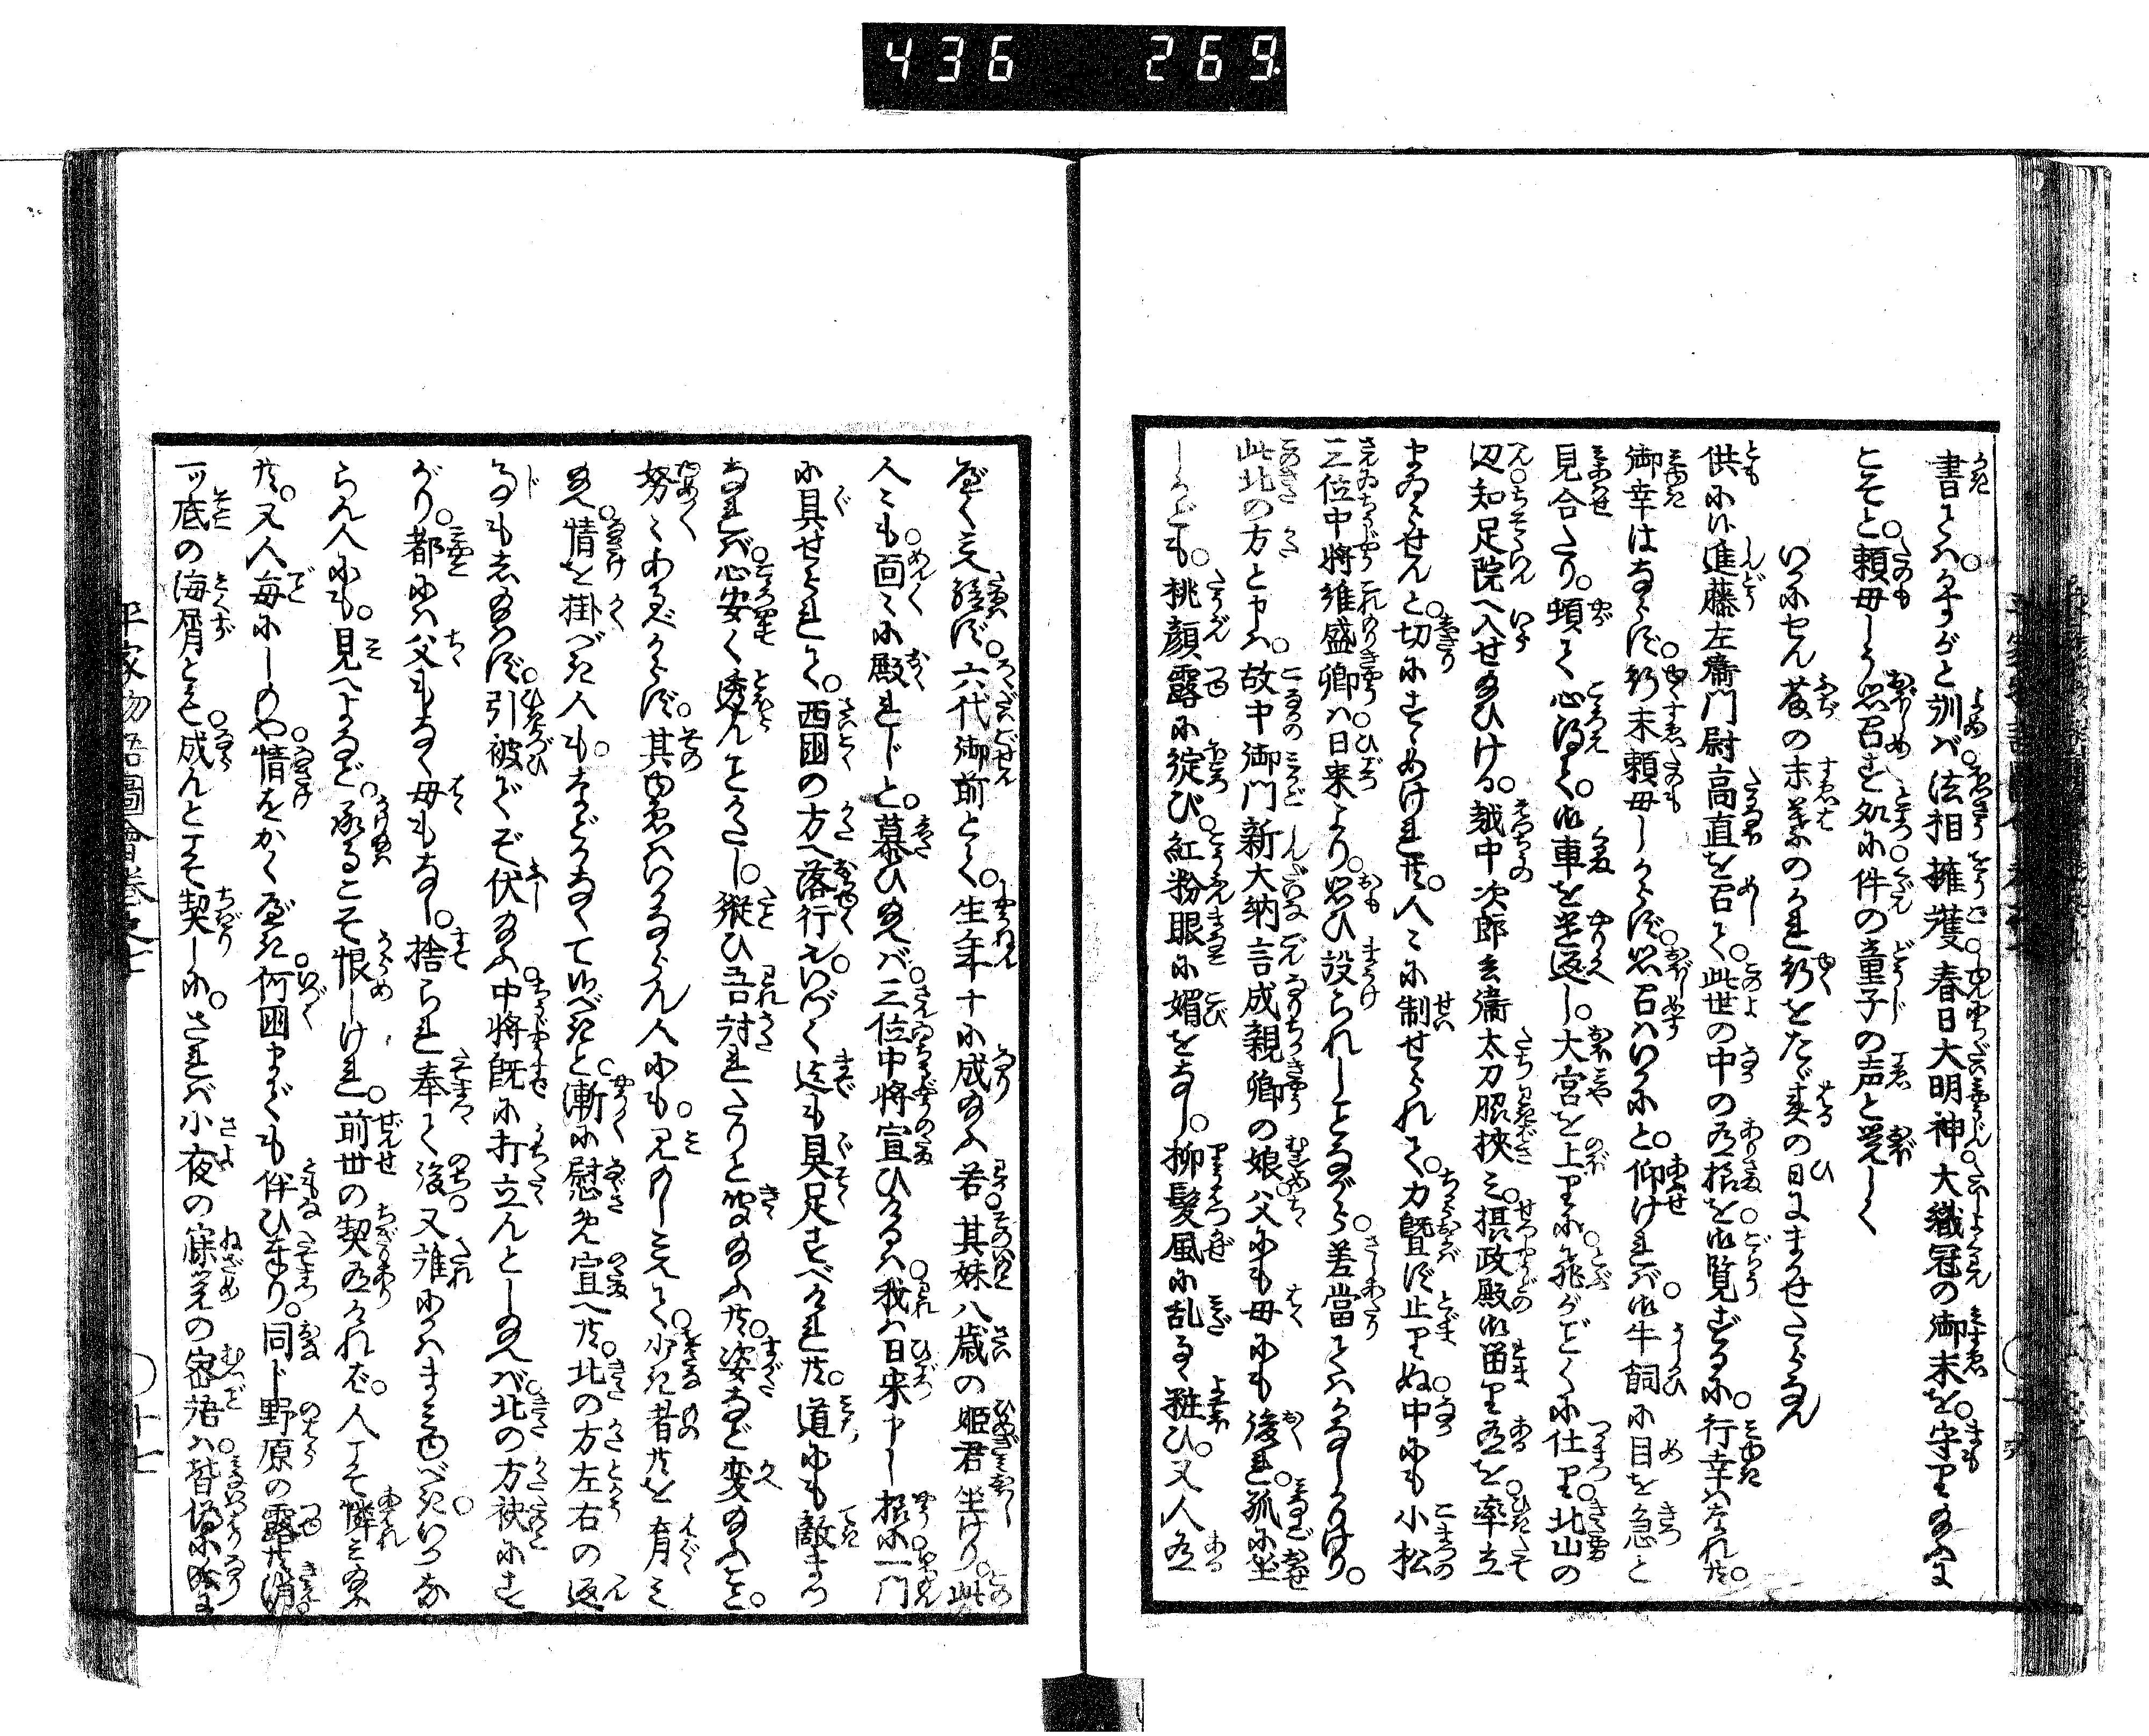 436 269
書てはかすがと訓ば。法相擁護。春日大明神。大織冠の御末を。守り給ふに
こそと。頼母しう思召す処に件の童子の声と覚しく
いかにせん藤の末葉のかれ行をたゞ春の日にまかせたらなん
供に候進藤左衛門尉高直を召て。此世の中の有招を御覧ずるに。行幸はなれ共。
御幸はならず。行末頼母しからず思召はいかにと。仰ければ。御牛飼に目を急と
見合たり。頓て心得て。御車を遣返し。大宮を上りに飛がごとくに仕り。北山の
辺知足院へ入せ給ひける。越中次郎兵衛太刀脇挾み。摂政殿御留り有を。率立
まゐらせんと。切にすゝめけれ共。人々に制せられて。力及ばず止りぬ中にも小松
三位中将維盛卿は日来より。思ひ設られしことながら。差當てはかなしかりけり。
此北の方と申は。故中御門新大納言成親卿の娘。父にも母にも後れ。孤に坐
しかども。桃顔露に綻び。紅粉眼に媚をなし。柳髪風に乱るゝ粧ひ。又人有
べく見給ず。六代御前とて。生年十に成給ふ若。其妹八歳の姫君坐けり。此
人々も。面々に殿れじと。慕ひ給へば。三位中将宣ひけるは。我は日来申し招に一門
に具せられて。西国の方へ落行也。いづく迄も具足すべけれ共。道にも敵まつ
なれば。心安く透んことかたし。縦ひ吾討れたりと聞給ふ共。姿など変給ふこと。
努々わるべからず。其由急はいかならん人にも。見のしみて。少き者共を育み
給へ。情を掛べき人も。などかなくて候べきと。漸に慰め宣へ共。北の方左右の返
事もし給はず。引被てぞ伏給ふ。中将既に打立んとし給へば。北の方袂にす
がり。都には父もなく母もなし。捨られ奉て後。又誰にかはまみゆべき。いかな
らん人にも。見へよなど。承るこそ恨しけれ。前世の契有ければ。人こそ憐み給
共。又人毎にしもや情をかくべき。何国までも伴ひ奉り。同じ野原の露共消
一ツ底の海屑とも成んとこそ契しに。されば小夜の寐覚の密語は。皆偽に成に
平家物語圖會巻之七
十七